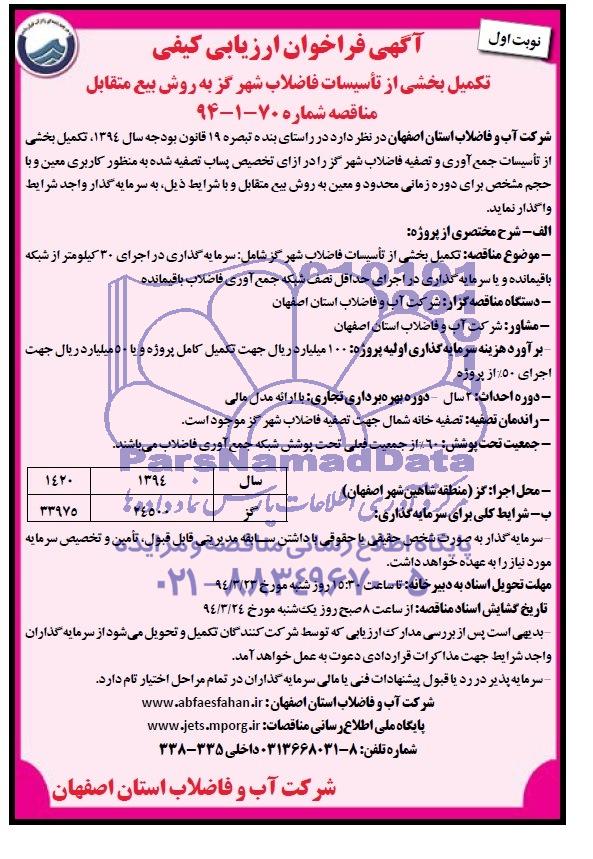 نوبت اول
آگهی فراخوان ارزیابی کیفی
تکمیل بخشی از تأسیسات فاضلاب شهر گز به روش بیع متقابل
مناقصه شماره ۷۰-۱-۹۴
شرکت آب و فاضلاب استان اصفهان در نظر دارد در راستای بنده تبصره ۱۹ قانون بودجه سال ۱۳۹۴، تکمیل بخشی
از تأسیسات جمع‌آوری و تصفیه فاضلاب شهر گز را در ازای تخصیص پساب تصفیه شده به منظور کاربری معین و با
حجم مشخص برای دوره زمانی محدود و معین به روش بیع متقابل و با شرایط ذیل، به سرمایه گذار واجد شرایط
واگذار نماید.
الف- شرح مختصری از پروژه:
- موضوع مناقصه: تکمیل بخشی از تأسیسات فاضلاب شهر گز شامل: سرمایه گذاری در اجرای ۳۰ کیلومتر از شبکه
باقیمانده و یا سرمایه گذاری در اجرای حداقل نصف شبکه جمع آوری فاضلاب باقیمانده
- دستگاه مناقصه گزار: شرکت آب و فاضلاب استان اصفهان
- مشاور: شرکت آب و فاضلاب استان اصفهان
- برآورد هزینه سرمایه گذاری اولیه پروژه: ۱۰۰ میلیارد ریال جهت تکمیل کامل پروژه و یا ۵۰ میلیارد ریال جهت
اجرای ۵۰٪ از پروژه
- دوره احداث: ۲ سال - دوره بهره برداری تجاری: با ارائه مدل مالی
- راندمان تصفیه: تصفیه خانه شمال جهت تصفیه فاضلاب شهر گز موجود است.
- جمعیت تحت پوشش: ۶۰٪ از جمعیت فعلی تحت پوشش شبکه جمع آوری فاضلاب می‌باشند.
سال ۱۳۹۴ ۱۴۲۰
گز ۲۴۵۰۰ ۳۳۹۷۵
- محل اجرا: گز (منطقه شاهین شهر اصفهان)
ب- شرایط کلی برای سرمایه گذاری:
- سرمایه گذار به صورت شخص حقیقی یا حقوقی با داشتن سابقه مدیریتی قابل قبول، تأمین و تخصیص سرمایه
مورد نیاز را به عهده خواهد داشت.
مهلت تحویل اسناد به دبیرخانه: تا ساعت ۱۵:۳۰ روز شنبه مورخ ۹۴/۳/۲۳
تاریخ گشایش اسناد مناقصه: از ساعت ۸ صبح روز یک‌شنبه مورخ ۹۴/۳/۲۴
- بدیهی است پس از بررسی مدارک ارزیابی که توسط شرکت کنندگان تکمیل و تحویل می‌شود از سرمایه گذاران
واجد شرایط جهت مذاکرات قراردادی دعوت به عمل خواهد آمد.
- سرمایه پذیر در رد یا قبول پیشنهادات فنی یا مالی سرمایه گذاران در تمام مراحل اختیار تام دارد.
شرکت آب و فاضلاب استان اصفهان: www.abfaesfahan.ir
پایگاه ملی اطلاع رسانی مناقصات: www.jets.mporg.ir
شماره تلفن: ۸-۰۳۱۳۶۶۸۰۳۱ داخلی ۳۳۵-۳۳۸
شرکت آب و فاضلاب استان اصفهان
ParsNamadData
مرکز فرآوری اطلاعات پارس نماد داده‌ها
پایگاه اطلاع رسانی مناقصه و مزایده
۰۲۱-۸۸۳۴۹۶۷۰-۵